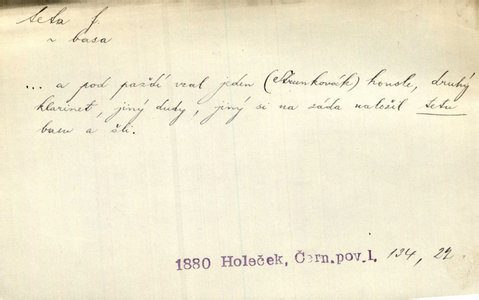 teta f.
~ basa
... a pod paždí vzal jeden (Strunkovák) housle, druhý
klarinet, jiný dudy, jiný si na záda naložil tetu
basu a šli.
1880 Holeček, Čern. pov. I. 134, 22.